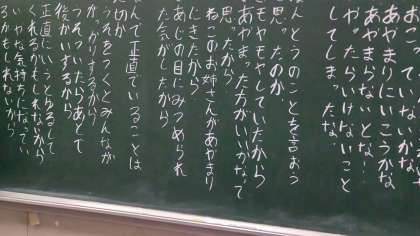 あやまりにいこうかな
あやまらないとな!
や。たらいけないこと
してしまったな.
んとうのことを言おう
思ったのか
モヤモヤしていたから
あやまった方がいいかなって
思ったから!
ねこのお姉さんがあやまり
にきたから
あじの目にみつめられ
た気がしたから
んで正直でいることは
のか
うそをつくとみんなが
がっかりするから
うそついたらあとで
後かいするから
正直にいうとゆるして
くれるかもしれないから
いやな気持ちになってい
るかもしれないから